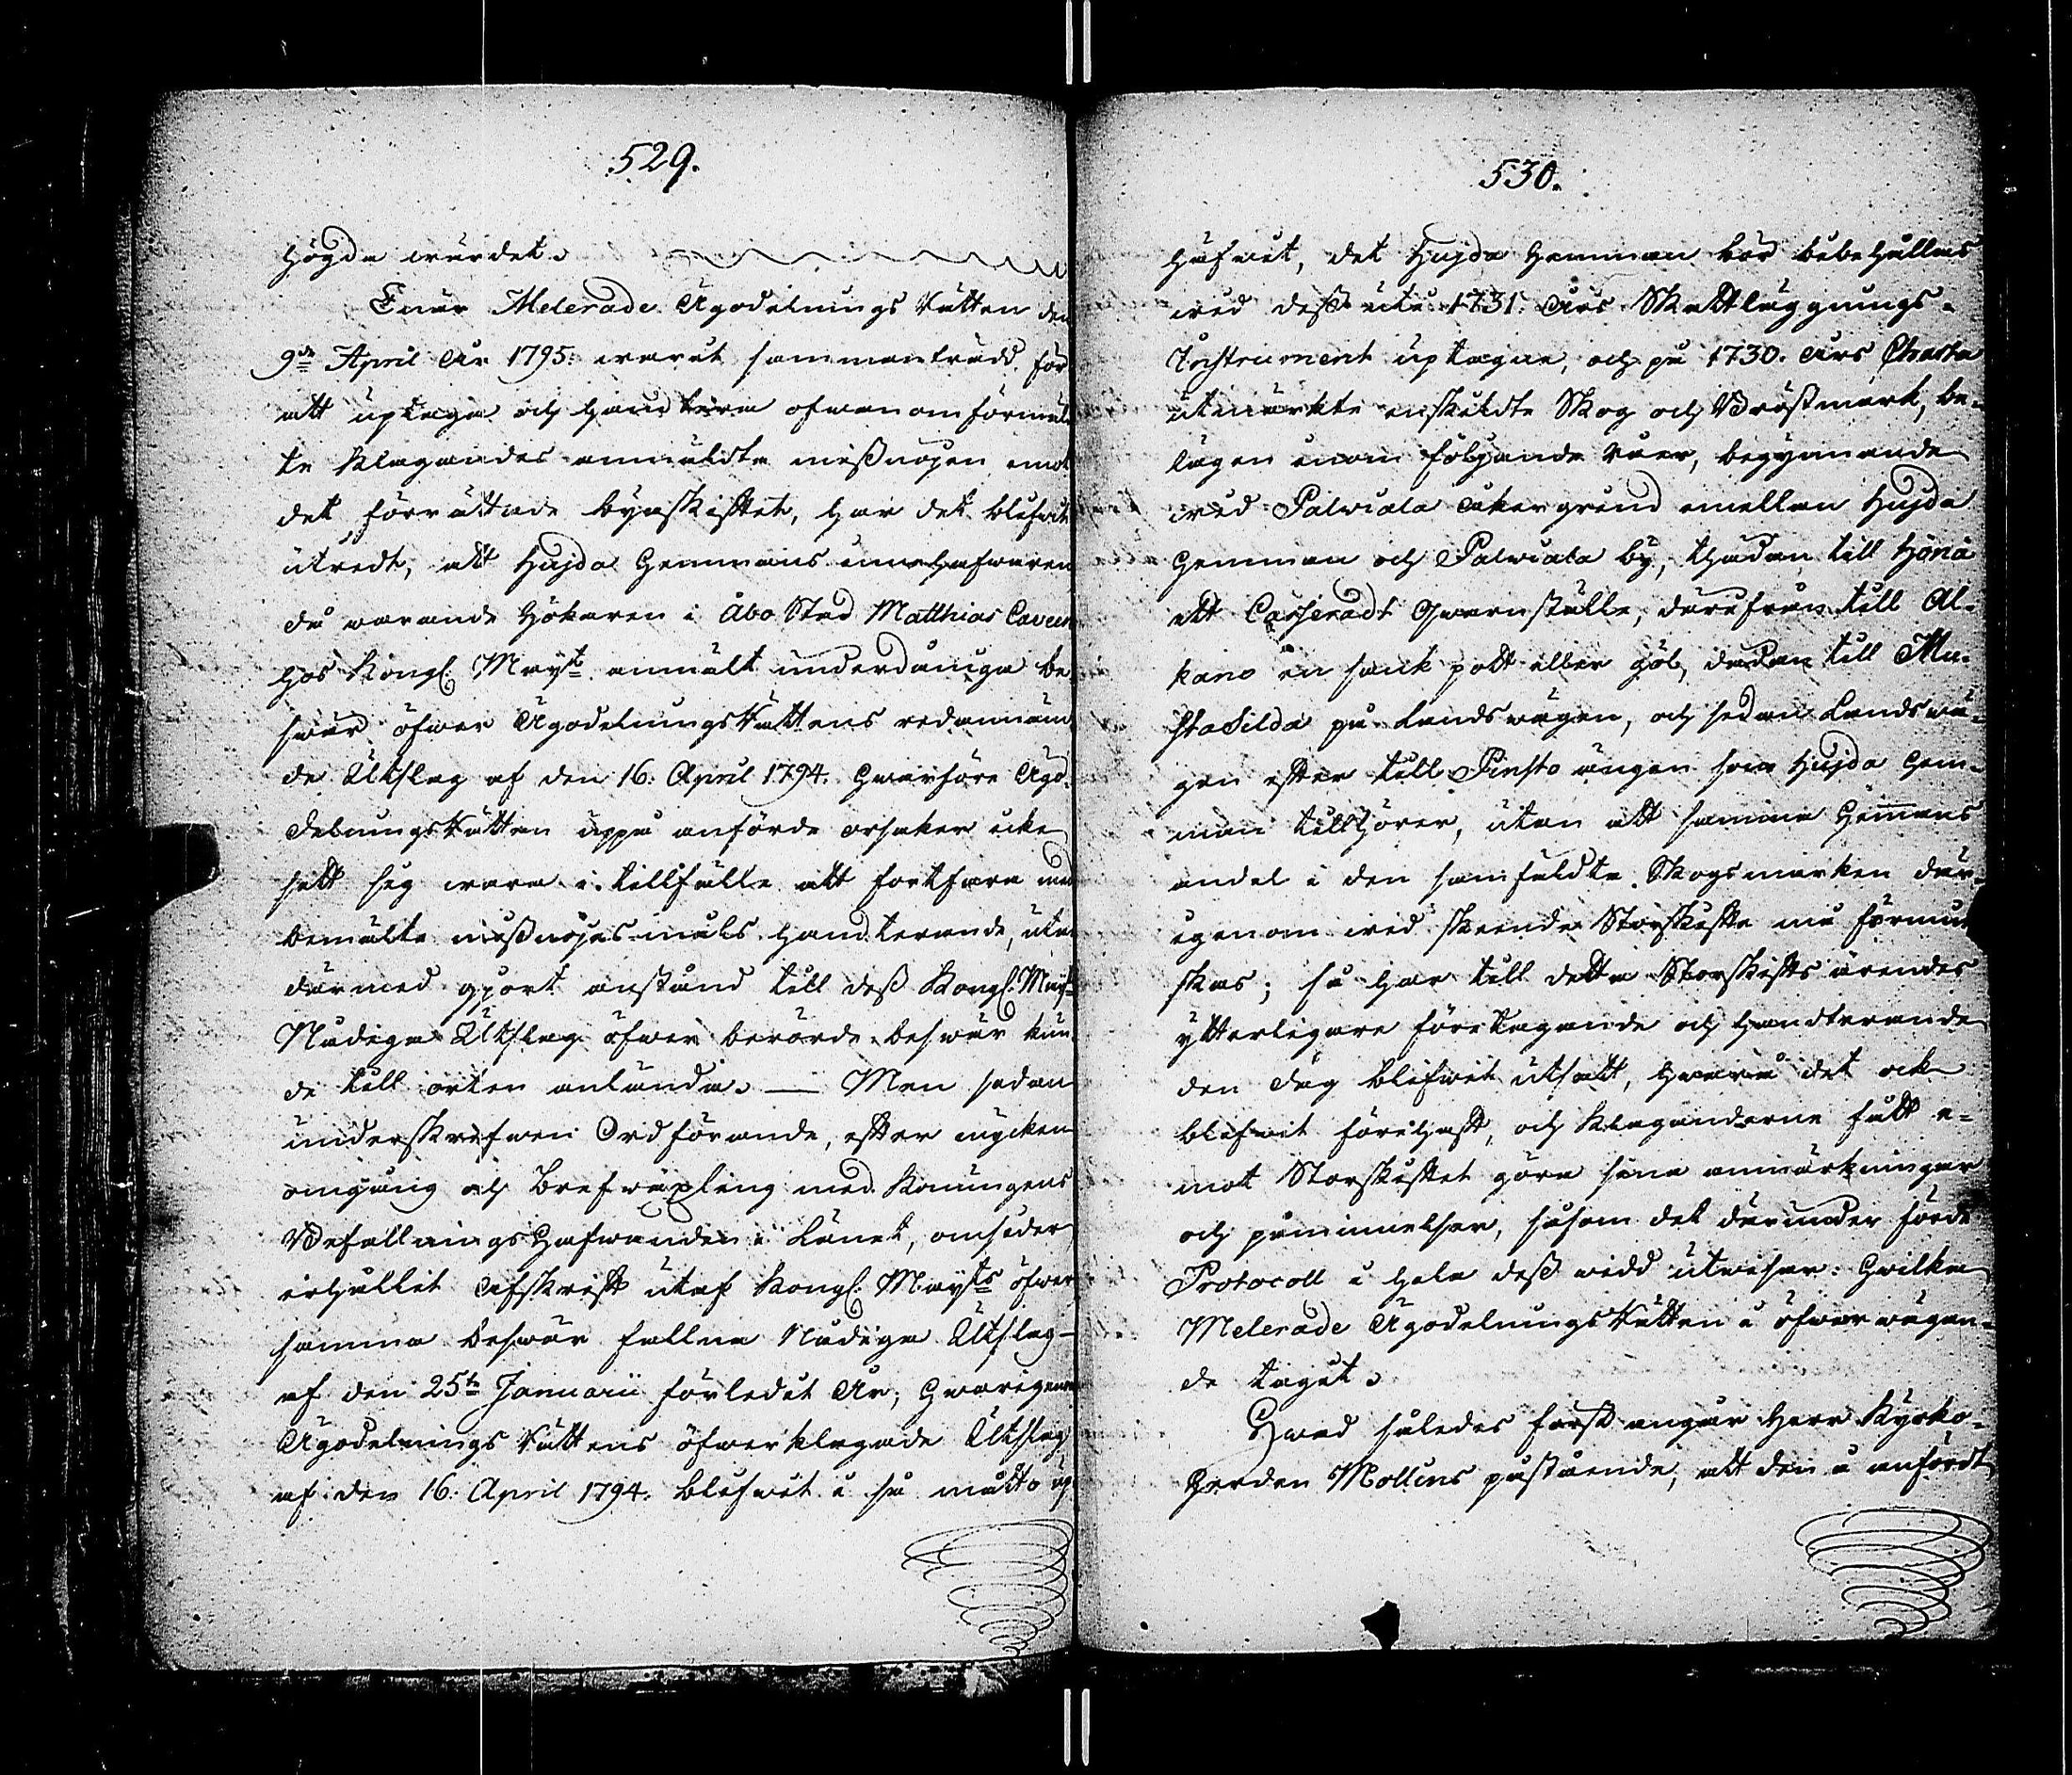 529.
högda wärdet.
Enär Melerade Ägodelnings Rätten den
9de April År 1795. warit sammanträdd för
att uptaga och handtera ofwanomförmäl-
te Klagandes anmäldte missnöjen emot
det förrättade byaskiftet, har det blifwit
utredt, att Hujda Hemmans innehafwaren
då warande Hökaren i Åbo Stad Matthias Caveen
hos Kongl. Mayt anmält underdåniga be-
swär öfwer Ägodelnings Rättens redannämn-
de Utslag af den 16. April 1794. Hwarföre Ägo-
delnings Rätten uppå anförde orsaker icke
sett sig wara i tillfälle att fortfara med
bemälte missnöjes måls handterande, utan
därmed gjort anstånd till dess Kongl. Mayts
Nådiga Utslag öfwer berörde beswär kun-
de till orten anlända. — Men sedan
underskrefwen Ordförande, efter mycken
omgång och Brefwäxling med Konungens
Befallningshafwanden i Länet, omsider
erhållit Afskrift utaf Kongl. Mayts öfwer
samma beswär fallna Nådiga Utslag
af den 25te Januarii förledit År, Hwarigenom
Ägodelnings Rättens öfwerklagade Utslag
af den 16. April 1794. blifwit i så måtto up-
530.
häfwit, det Hujda Hemman bör bibehållas
wid dess uti 1731. års Skattläggnings-
Instrument uptagne, och på 1730. års Charta
utmärkte enskildte Skog och Bröstmark, be-
lägen inom följande råer, begynnande
wid Palwiala åkergrind emellan Hujda
Hemman och Palwiala by, thädan till Hönä
ett Casseradt Qwarnställe, därifrån till Al-
kano en sank pott eller göl, dädan till Mu-
stasilda på Landswägen, och sedan Landswä-
gen efter till Pinsto ängen som Hujda Hem-
man tillhörer, utan att samma Hemans
andel i den samfäldte Skogsmarken där-
igenom wid skeende Storskifte må förmin-
skas; så har till detta Storskifts ärendes
ytterligare företagande och handterande
den dag blifwit utsatt, hwarå det ock
blifwit förehaft, och Klaganderne fått e-
mot Storskiftet göra sina anmärkningar
och påminnelser, såsom det därunder förde
Protocoll i hela dess widd utwisar: Hwilka
Melerade Ägodelnings Rätten i öfwerwägan-
de tagit.
Hwad således först angår Herr Kyrko-
herden Mollins påstående, att den å anfördt